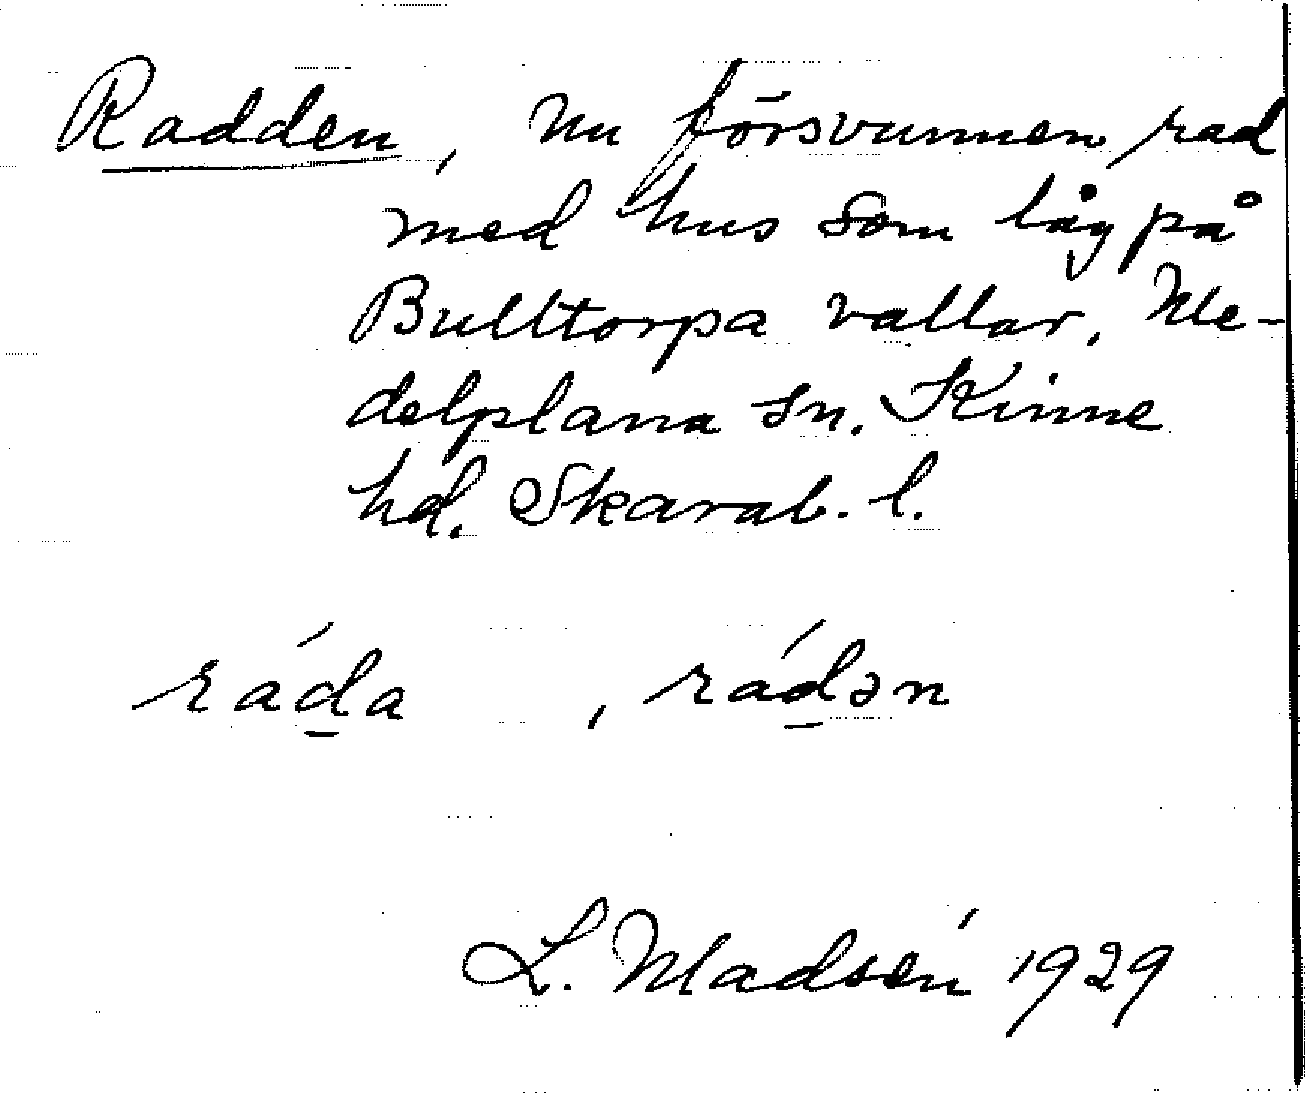 Radden, nu försvunnen rad
med hus som låg på
Bulltorpa vallar, Me-
delplana sn. Kinne
hd. Skarab. l.
rád̲a , rád̲ən
L. Madsén 1929